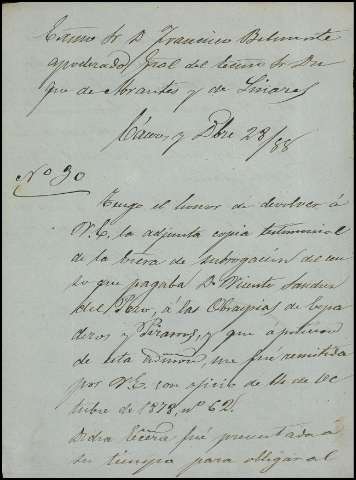 Exmo Sr D. Francisco Belmonte
apoderado Gral del Excmo Sr Du
que de Abrantes y de Linares
Cáceres y Dbre 28/88
No 90
Tengo el honor de devolver á
V.E. la adjunta copia testimonial
de la de subrogacion del cen
so que pagaba Dn Vicente Sanchez
del Pozo, á las Obraspias de
y Pizarros, y que á peticion
de esta admon, me fué remitida
por V.E. con oficio de 14 de Oc
tubre de 1878, no 62.
Dicha fué presentada á
su tiempo para obligar al